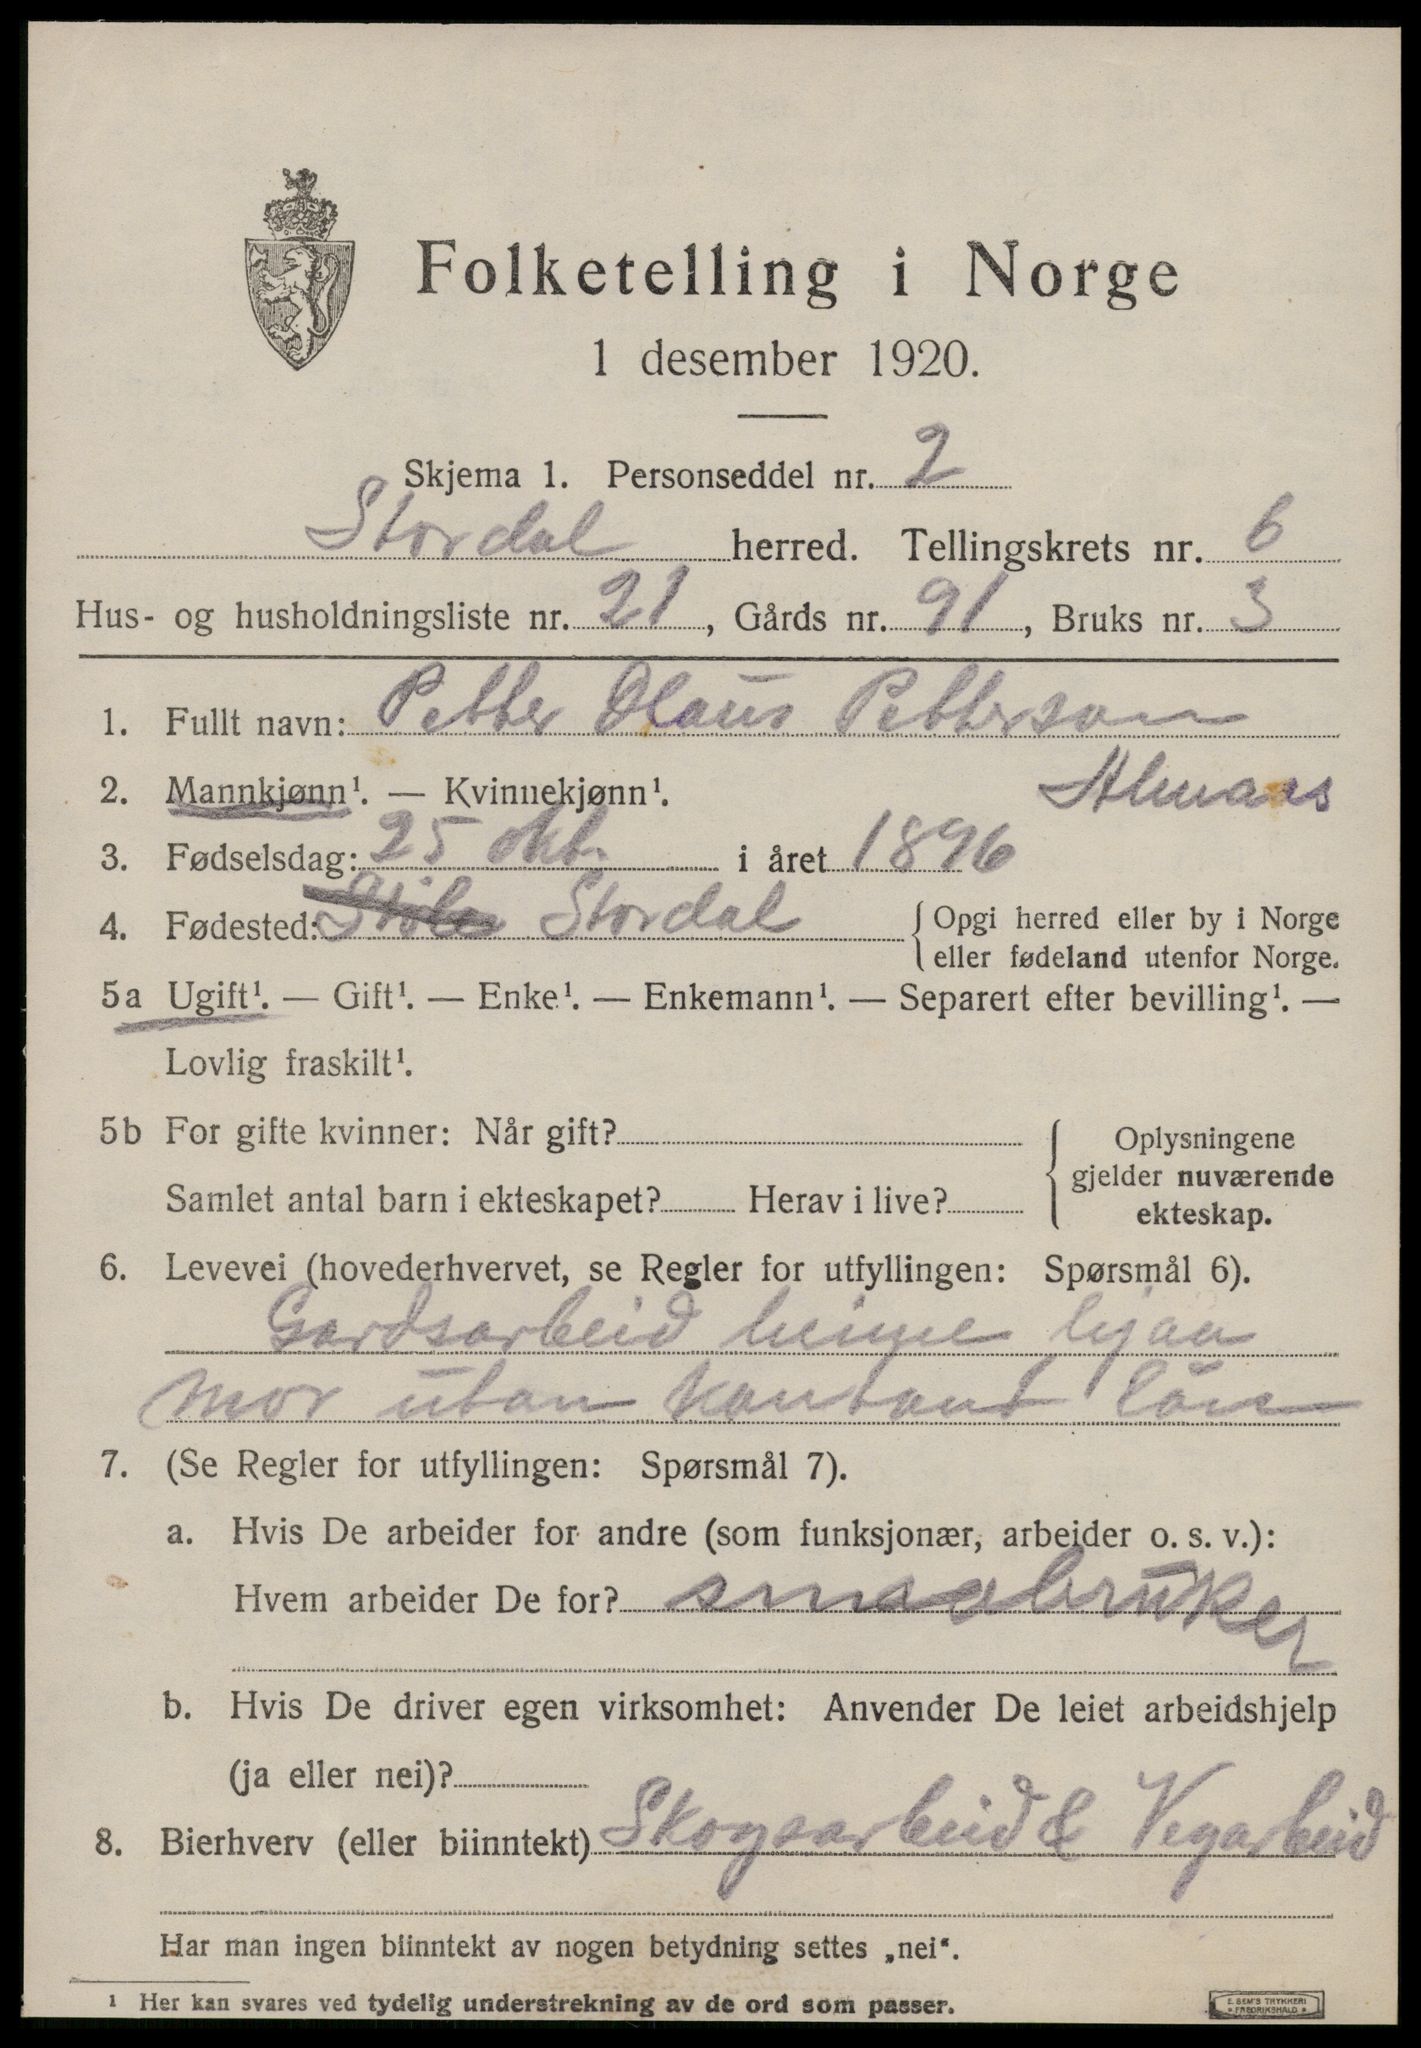 Folketelling i Norge
1 desember 1920.
Skjema 1. Personseddel nr. 2
Stordal herred. Tellingskrets nr. 6
Hus- og husholdningsliste nr. 21, Gårds nr. 91, Bruks nr. 3
1. Fullt navn: Petter Olaus Petterson
Almaas
2. Mannkjønn¹. — Kvinnekjønn¹.
3. Fødselsdag: 25 okt. i året 1896
4. Fødested: Stordal { Opgi herred eller by i Norge
eller fødeland utenfor Norge.
5a Ugift¹. — Gift¹. — Enke¹. — Enkemann¹. — Separert efter bevilling¹. —
Lovlig fraskilt¹.
5b For gifte kvinner: Når gift? { Oplysningene
gjelder nuværende
Samlet antal barn i ekteskapet? Herav i live?
ekteskap.
6. Levevei (hovederhvervet, se Regler for utfyllingen: Spørsmål 6).
Gardsarbeid heime hjaa
mor utan kontant løn
7. (Se Regler for utfyllingen: Spørsmål 7).
a. Hvis De arbeider for andre (som funksjonær, arbeider o. s. v.):
Hvem arbeider De for? smaabruker
b. Hvis De driver egen virksomhet: Anvender De leiet arbeidshjelp
(ja eller nei)?
8. Bierhverv (eller biinntekt) Skogsarbeid & Vegarbeid
Har man ingen biinntekt av nogen betydning settes „nei“.
¹ Her kan svares ved tydelig understrekning av de ord som passer.
E. SEM'S TRYKKERI
* FREDRIKSHALD *